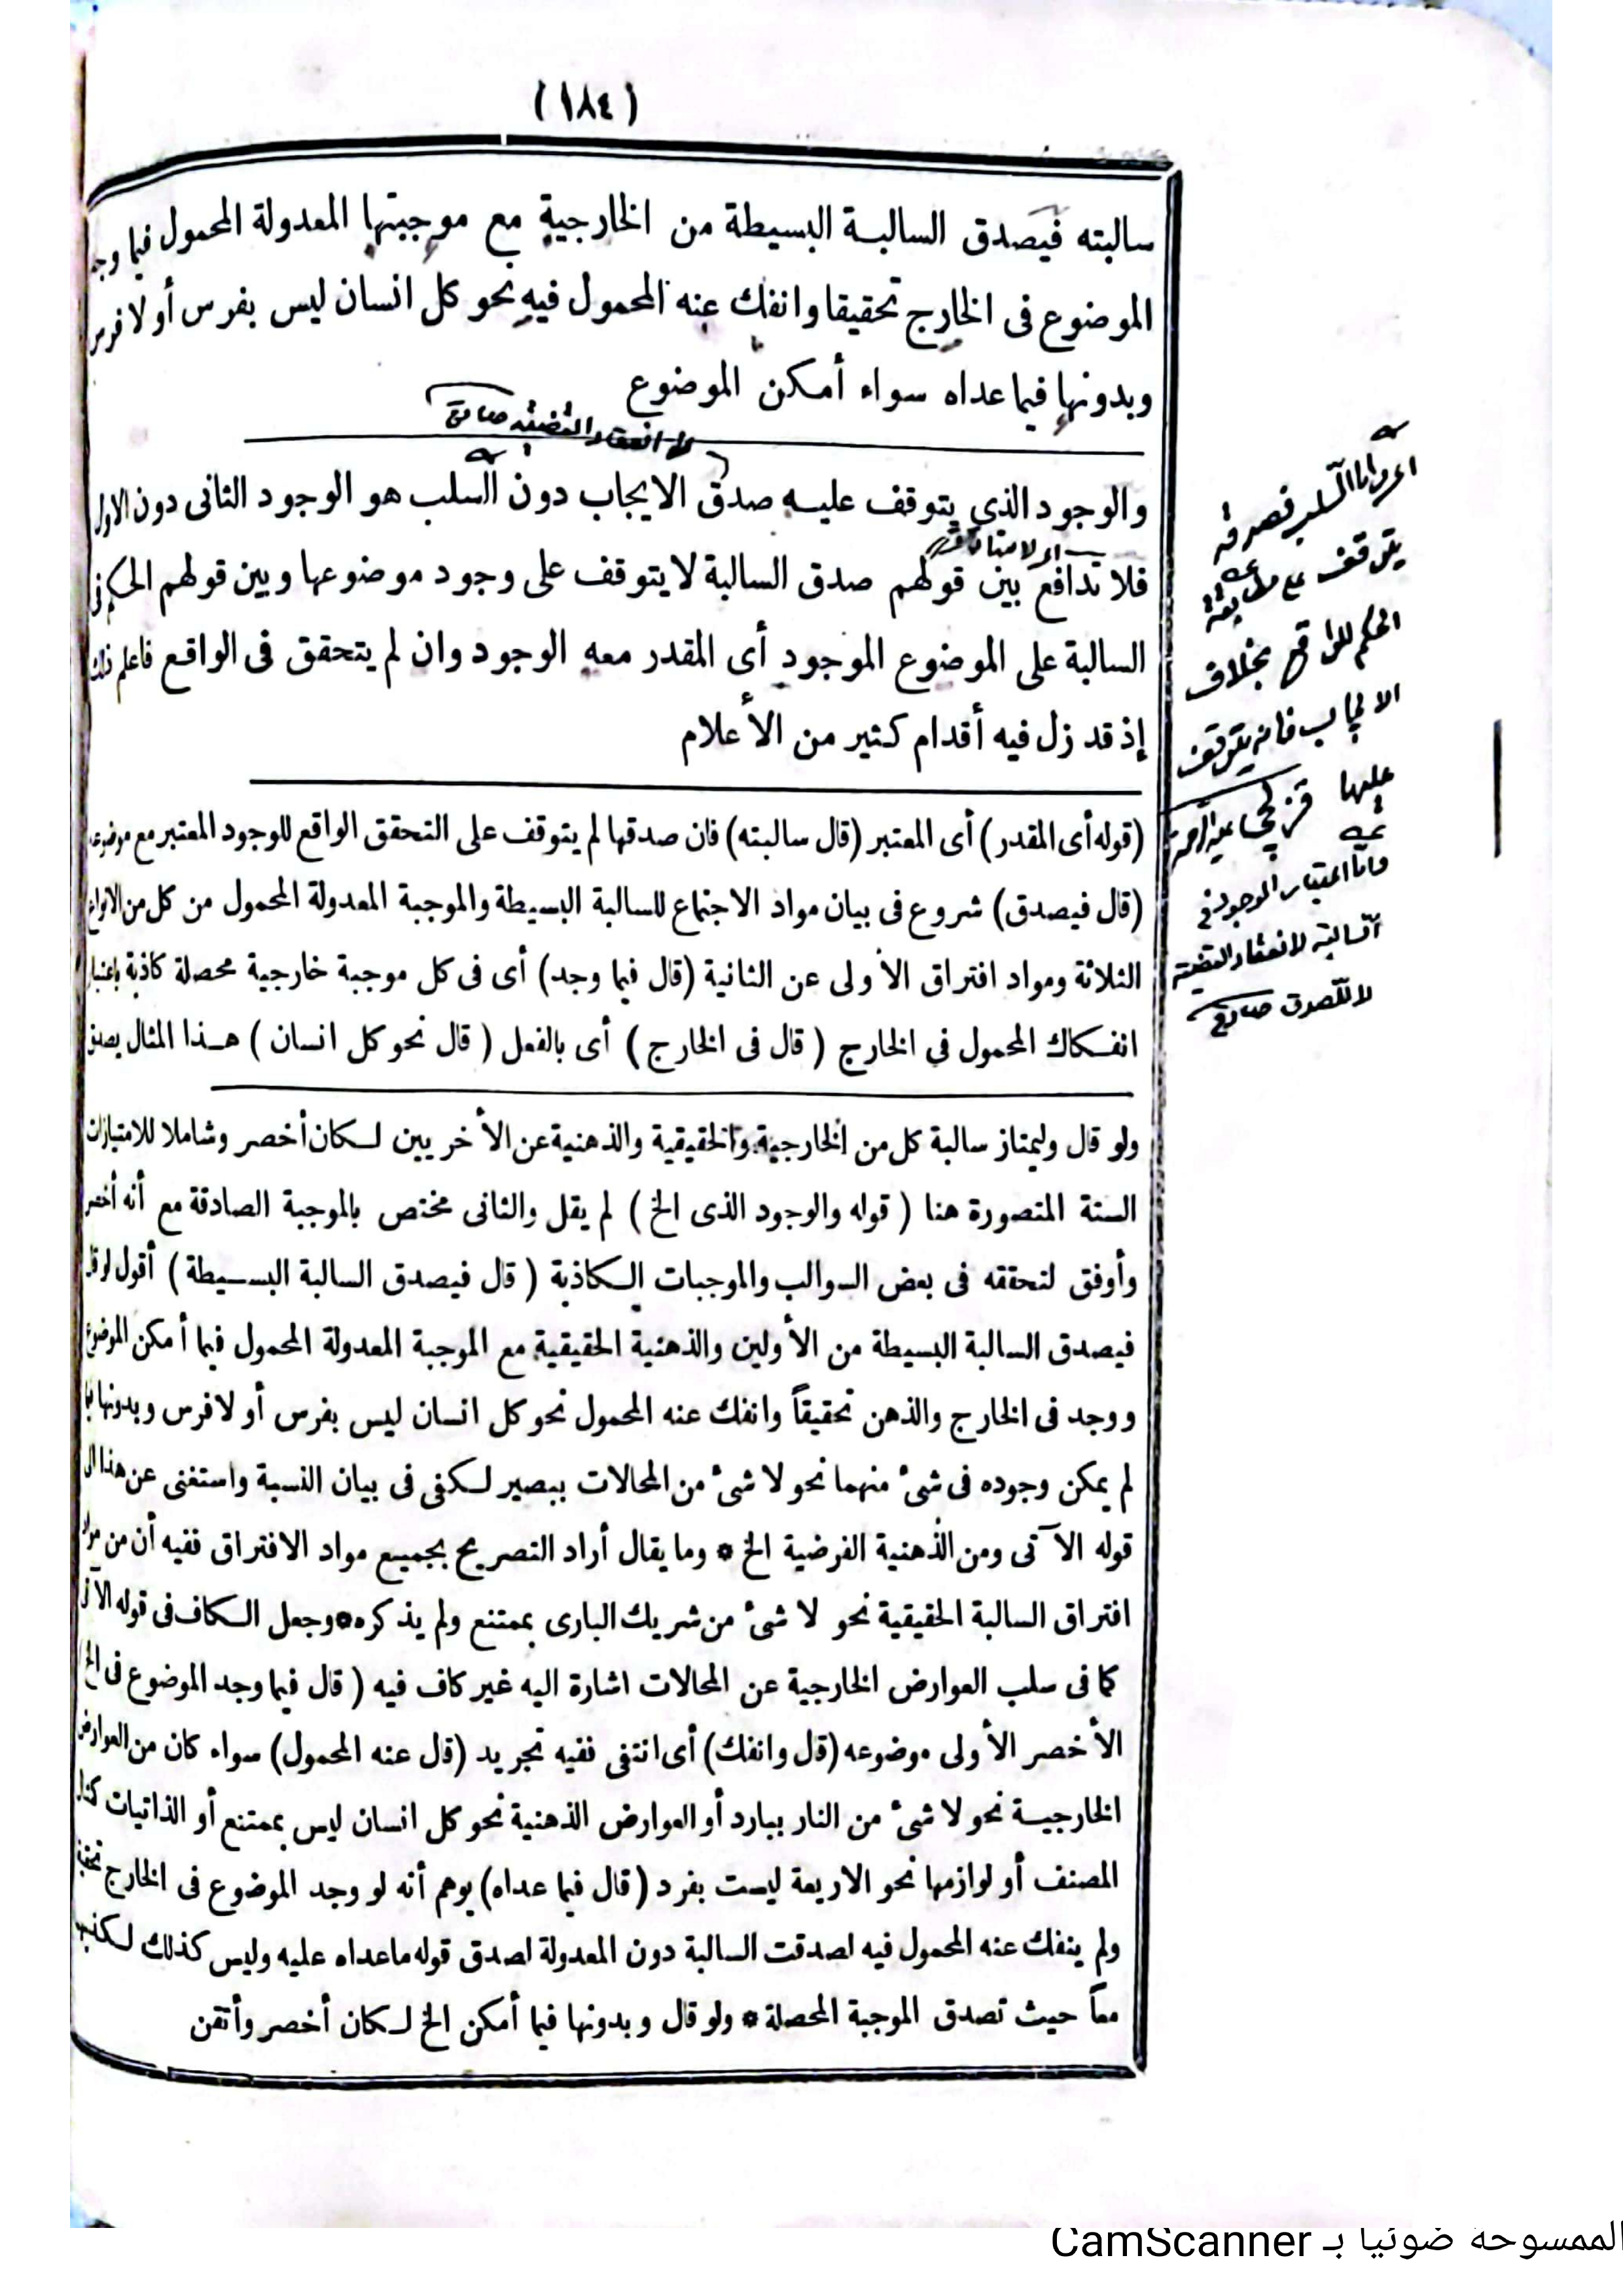 (١٨٤)
سالبته فيصدق السالبة البسيطة من الخارجية مع موجبتها المعدولة المحمول فيما وجد
الموضوع فى الخارج تحقيقا وانفك عنه المحمول فيه نحو كل انسان ليس بفرس أو لا فرس
وبدونها فيما عداه سواء أمكن الموضوع
والوجود الذى يتوقف عليه صدق الايجاب دون السلب هو الوجود الثانى دون الاول
فلا تدافع بين قولهم صدق السالبة لا يتوقف على وجود موضوعها وبين قولهم الحكم فى
السالبة على الموضوع الموجود أى المقدر معه الوجود وان لم يتحقق فى الواقع فاعلم ذلك
إذ قد زل فيه أقدام كثير من الأعلام
(قوله أى المقدر) أى المعتبر (قال سالبته) فان صدقها لم يتوقف على التحقق الواقع للوجود المعتبر مع موضوعه
(قال فيصدق) شروع فى بيان مواد الاجتماع للسالبة البسيطة والموجبة المعدولة المحمول من كل من الانواع
الثلاثة ومواد افتراق الأولى عن الثانية (قال فيما وجد) أى فى كل موجبة خارجية محصلة كاذبة باعتبار
انفكاك المحمول فى الخارج (قال فى الخارج) أى بالفعل (قال نحو كل انسان) هذا المثال يصدق
ولو قال وليمتاز سالبة كل من الخارجية والحقيقية والذهنية عن الأخريين لكان أخصر وشاملا للامتيازات
الستة المتصورة هنا (قوله والوجود الذى الخ) لم يقل والثانى مختص بالموجبة الصادقة مع أنه أخصر
وأوفق لتحققه فى بعض السوالب والموجبات الكاذبة (قال فيصدق السالبة البسيطة) أقول لو قال
فيصدق السالبة البسيطة من الأولين والذهنية الحقيقية مع الموجبة المعدولة المحمول فيما أمكن الموضوع
ووجد فى الخارج والذهن تحقيقاً وانفك عنه المحمول نحو كل انسان ليس بفرس أو لا فرس وبدونها فيما
لم يمكن وجوده فى شئ منهما نحو لا شئ من المحالات ببصير لكفى فى بيان النسبة واستغنى عن هذا
قوله الآتى ومن الذهنية الفرضية الخ * وما يقال أراد التصريح بجميع مواد الافتراق ففيه أن من مواد
افتراق السالبة الحقيقية نحو لا شئ من شريك البارى بممتنع ولم يذكره * وجعل الكاف فى قوله الآتى
كما فى سلب العوارض الخارجية عن المحالات اشارة اليه غير كاف فيه (قال فيما وجد الموضوع فى الخ)
الأخصر الأولى موضوعه (قال وانفك) أى انتفى ففيه تجريد (قال عنه المحمول) سواء كان من العوارض
الخارجية نحو لا شئ من النار ببارد أو العوارض الذهنية نحو كل انسان ليس بممتنع أو الذاتيات كمثال
المصنف أو لوازمها نحو الاربعة ليست بفرد (قال فيما عداه) يوهم أنه لو وجد الموضوع فى الخارج تحقيقا
ولم ينفك عنه المحمول فيه لصدقت السالبة دون المعدولة لصدق قوله ما عداه عليه وليس كذلك لكذبهما
معاً حيث تصدق الموجبة المحصلة * ولو قال وبدونها فيما أمكن الخ لكان أخصر وأتقن
اى واما السلب فصدقه
يتوقف على مطابقة
الحكم للواقع بخلاف
الايجاب فانه يتوقف
عليها
واما اعتبار الوجود فى
السالبة لانعقاد القضية
لا للصدق
الممسوحة ضوئيا بـ CamScanner